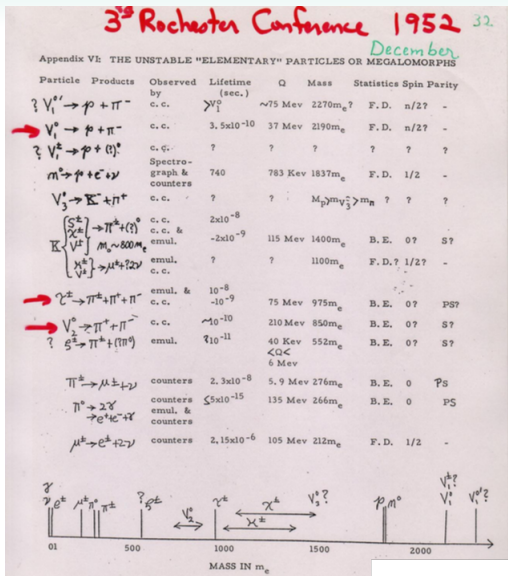 3rd Rochester Conference 1952 32
December
Appendix VI: THE UNSTABLE "ELEMENTARY" PARTICLES OR MEGALOMORPHS
Particle Products Observed by Lifetime (sec.) Q Mass Statistics Spin Parity
? V₁⁰' → p + π⁻ c.c. >V₁⁰ ~75 Mev 2270mₑ? F.D. n/2? -
V₁⁰ → p + π⁻ c.c. 3.5x10⁻¹⁰ 37 Mev 2190mₑ F.D. n/2? -
? V₁± → p + (?)⁰ c.c. ? ? ? ? ? ?
n⁰ → p + e⁻ + ν Spectro-graph & counters 740 783 Kev 1837mₑ F.D. 1/2 -
V₃⁰ → K⁻ + π⁺ c.c. ? ? ? ? ?
K { S± χ± V± } → π± + (?)⁰ c.c. c.c. & emul. 2x10⁻⁸ -2x10⁻⁹ 115 Mev 1400mₑ B.E. 0? S?
m₀ ~ 800mₑ
{ κ± V± } → μ± + ?2ν emul. c.c. ? ? 1100mₑ F.D.? 1/2? -
τ± → π± + π⁺ + π⁻ emul. & c.c. 10⁻⁸ -10⁻⁹ 75 Mev 975mₑ B.E. 0? PS?
V₂⁰ → π⁺ + π⁻ c.c. ~10⁻¹⁰ 210 Mev 850mₑ B.E. 0? S?
? ζ± → π± + (?π⁰) emul. ?10⁻¹¹ 40 Kev <Q< 6 Mev 552mₑ B.E. 0? S?
π± → μ± + ν counters 2.3x10⁻⁸ 5.9 Mev 276mₑ B.E. 0 PS
π⁰ → 2γ → e⁺ + e⁻ + γ counters emul. & counters ≤5x10⁻¹⁵ 135 Mev 266mₑ B.E. 0 PS
μ± → e± + 2ν counters 2.15x10⁻⁶ 105 Mev 212mₑ F.D. 1/2 -
γ ν e± μ± π⁰ π± ?ζ± V₂⁰ τ± χ± κ± V₃⁰? p n⁰ V₁±? V₁⁰ V₁⁰'?
01 500 1000 1500 2000
MASS IN mₑ